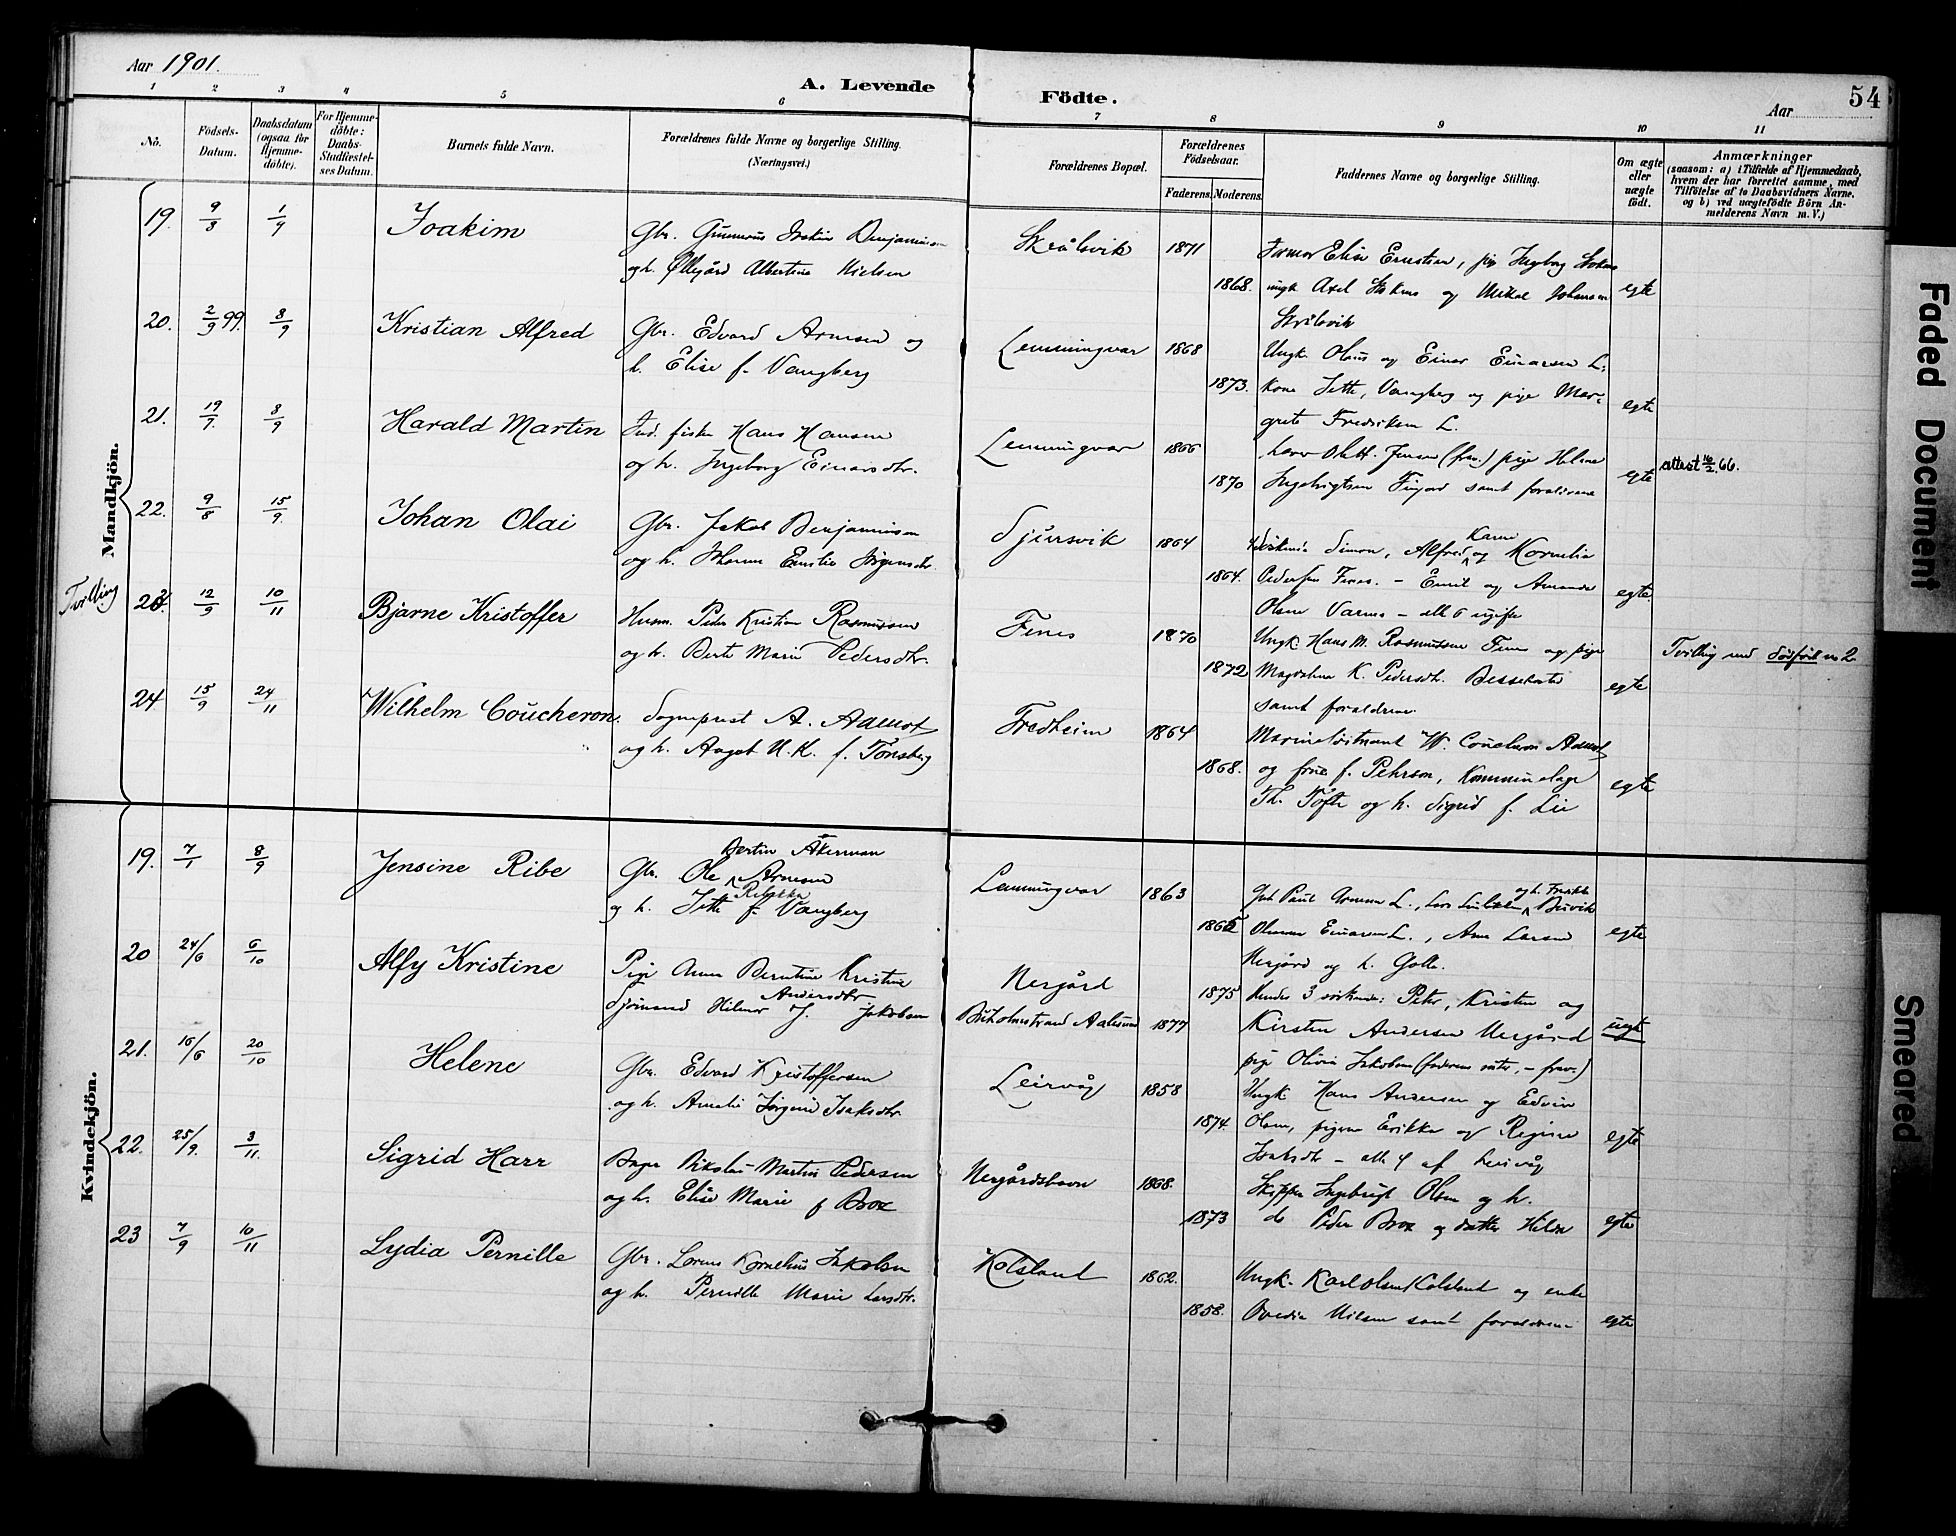 Aar 1901.
A. Levende Födte.
Aar 54
1 2 3 4 5 6 7 8 9 10 11
No.
Födsels-Datum.
Daabsdatum (ogsaa for Hjemme-döbte).
For Hjemme-döbte: Daabs-Stadfæstel-ses Datum.
Barnets fulde Navn.
Forældrenes fulde Navne og borgerlige Stilling.
(Næringsvei.)
Forældrenes Bopæl.
Forældrenes Födselsaar.
Faderens. Moderens.
Faddernes Navne og borgerlige Stilling.
Om ægte eller uægte födt.
Anmærkninger
(saasom: a) i Tilfælde af Hjemmedaab, hvem der har forrettet samme, med Tilföielse af to Daabsvidners Navne. og b) ved uægtefödte Börn An-melderens Navn m. V.)
Mandkjön.
19. 9/8 1/9 Joakim
Gbr. Gunnerus Benjaminsen
og h. Albertine Nielsen
1871
1868.
Farmor Elise Ernstsen, pige Ingborg
ungk. Axel og Mikal Johansen
egte
20. 2/9 99. 8/9 Kristian Alfred
Gbr. Edvard Arnesen og
h. Elise f. Vangberg
Lemmingvær 1868
1873.
Ungk. Olaus og Einar Einarsen L.
Kone Jette Vangberg og pige Mar-
grete Fredriksen L.
egte
21. 19/7. 8/9 Harald Martin
Ind. fisker Hans Hansen
og h. Ingeborg Einarsdtr.
Lemmingvær 1866
1870
Jensen (frav.) pige Helene
Ingebrigtsen samt forældrene
egte
attest 16/2. 66.
22. 9/8 15/9. Johan Olai
Gbr. Jakob Benjaminsen
og h. Johanna Emilie Jörgensdtr.
1864
1864.
4 Simon, Alfred og Karen Kornelia
Pedersen Finnes. - Emil og Amanda
Olsen - alle 6 ugifte
egte.
Tvilling
23. 12/9 10/11 Bjarne Kristoffer
Husm. Peder Kristian Rasmussen
og h. Berte Marie Pedersdtr.
1870
1872
Ungk. Hans M. Rasmussen og pige
Magdalena K. Pedersdtr.
samt forældrene.
egte
Tvilling med dödfödt no 2
24 15/9 24/11 Wilhelm Coucheron.
Sogneprest A. Aamot
og h. Aagot U. K. f. Tönsberg
Fredheim 1864
1868.
Marinelöitnant W. Coucheron Aamot
og frue f. Pehrson, Kommunelæge
Th. Tofte og h. Sigrid f. Lie
egte
Kvindekjön.
19. 7/1 8/9 Jensine Ribe
Gbr. Ole Bertin Åkerman Arnesen
og h. Jette Rebekka f. Vangberg
Lemmingvær 1863
1865
Gbr. Paul Arnesen L.,
Einarsen L., Arne Larsen
Nergård og h.
egte
20 24/6 6/10 Alfy Kristine
Pige Anna Berntine Kristine
Andersdtr
Sjömand Hilmar J. Jakobsen
Nergård
Aalesund 1875
1877
Hendes 3 söskende: Peter, Kristen og
Kirsten Andersen Nergård
pige Olivia Jakobsen (faderens söster, - frav.)
uegte
21. 16/6 20/10 Helene
Gbr. Edvard Kristoffersen
og h. Amalie Jörgine Isaksdtr.
Leirvåg 1858
1874.
Ungk. Hans Andersen og Edvin
Olsen, pigerne Erikka og Regine
Isaksdtr - alle 4 af Leirvåg
egte
22. 25/9. 3/11. Sigrid Harr
Nikolai Martin Pedersen
og h. Elise Marie f Brox
Nergårdshavn 1868.
1873
Skipper Ingebrigt Olsen og h.
do Peder Brox og datter Hilda
egte
23 7/9 10/11 Lydia Pernille
Gbr. Lorens Kornelius Jakobsen
og h. Pernille Marie Larsdtr.
Kolsland 1862.
1858.
Ungk. Karl Olsen Kolsland og enke
Ovedia Nilsen samt forældrene
egte
Faded Document
Smeared